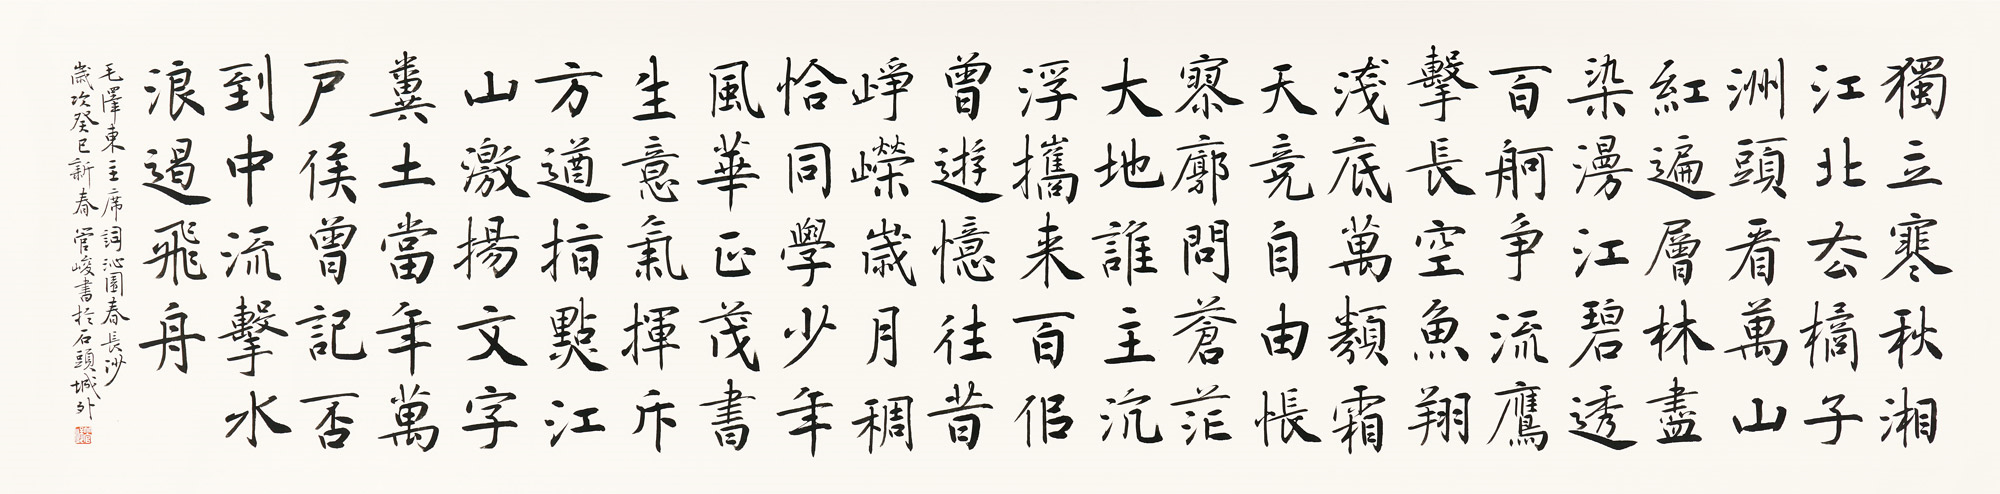 獨立寒秋湘
江北去橘子
洲頭看萬山
紅遍層林盡
染漫江碧透
百舸争流鷹
擊長空魚翔
淺底萬類霜
天竞自由悵
寥廓問蒼茫
大地誰主沉
浮攜来百侣
曾遊憶往昔
崢嶸歲月稠
恰同學少年
風華正茂書
生意氣揮斥
方遒指點江
山激揚文字
糞土當年萬
户侯曾記否
到中流擊水
浪遏飛舟
毛澤東主席詞沁園春長沙
歲次癸巳新春 管峻書於石頭城外